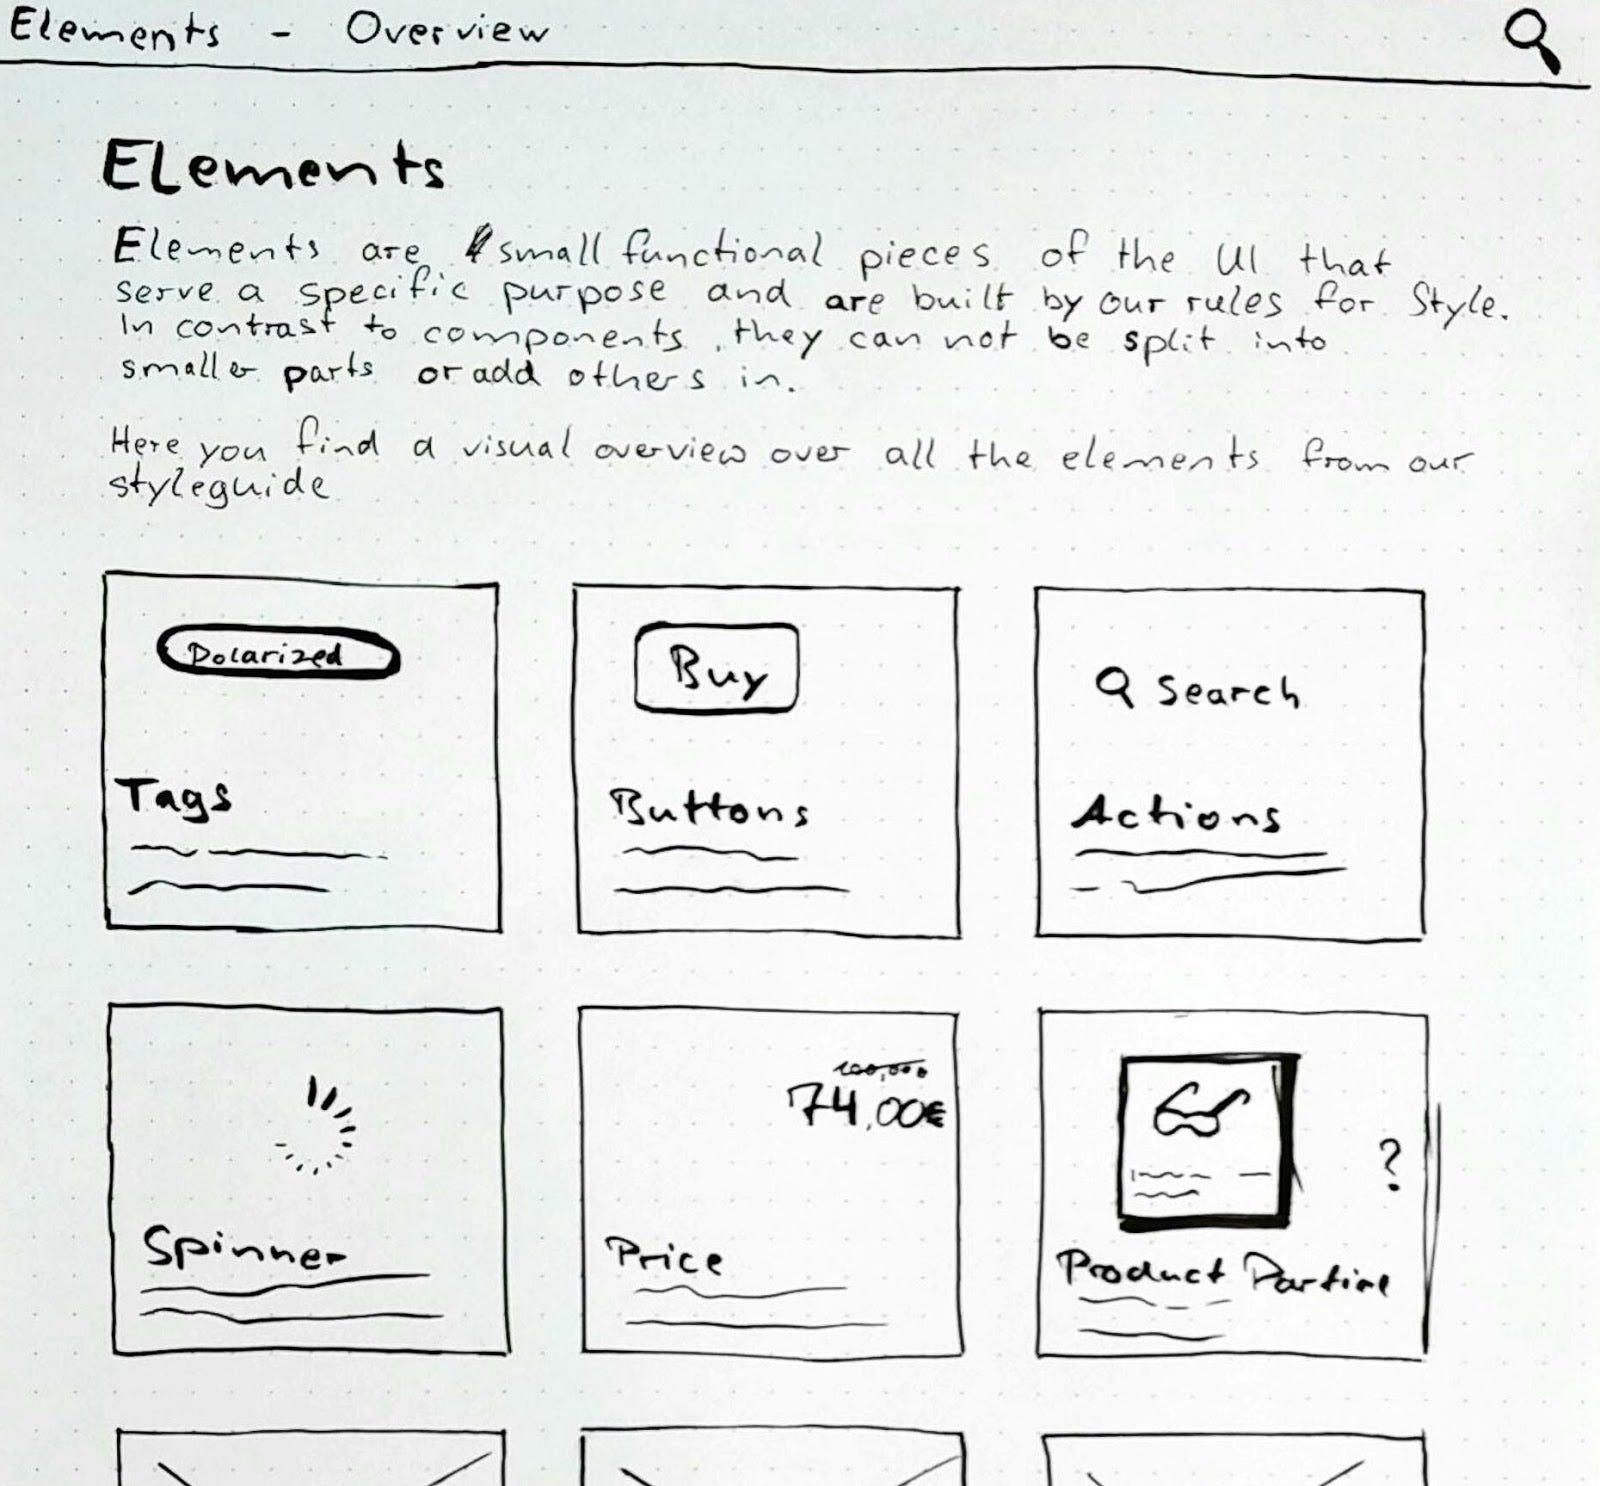 Elements - Overview
Elements
Elements are small functional pieces of the UI that
serve a specific purpose and are built by our rules for Style.
In contrast to components, they can not be split into
smaller parts or add others in.
Here you find a visual overview over all the elements from our
styleguide
Polarized
Buy
Search
Tags
Buttons
Actions
100,00
74,00€
?
Spinner
Price
Product